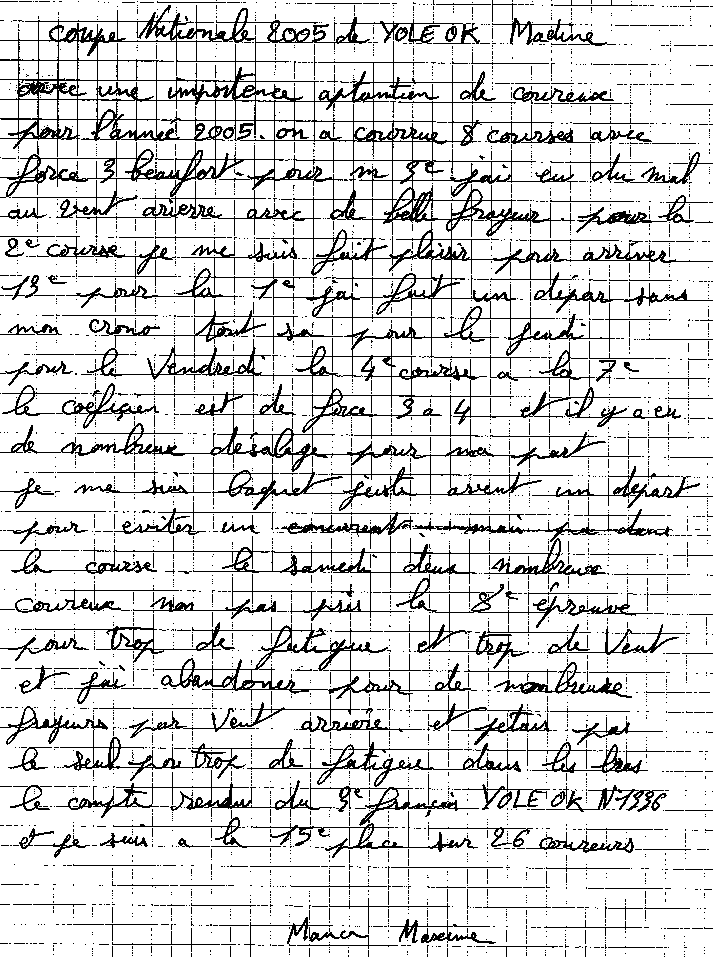 Coupe Nationale 2005 de YOLE OK Madine
avec une importence aptantien de coureux
pour l'année 2005. on a courrue 8 courses avec
force 3 beaufort. pour m 3e j'ai eu du mal
au vent arierre avec de belle frayeur. pour la
2e course je me suis fait plaisir pour arriver
13e pour la 1e j'ai fait un dépar sans
mon crono tout sa pour le jeudi
pour le Vendredi la 4e course a la 7e
le coéfiçien est de force 3 a 4 et il y a eu
de nombreux désalage pour ma part
je me suis baquet juste avent un départ
pour éviter un concurent mais pa dans
la course. le samedi deux nombreux
coureux non pas pris la 8e épreuve
pour trop de fatigue et trop de Vent
et j'ai abandoner pour de nombreuse
frayeurs par Vent arrière. et jetais pas
le seul pour trop de fatigue dans les bras
le compte rendu du 3e français YOLE OK N°1336
et je suis a la 15e place sur 26 coureurs
Maxime